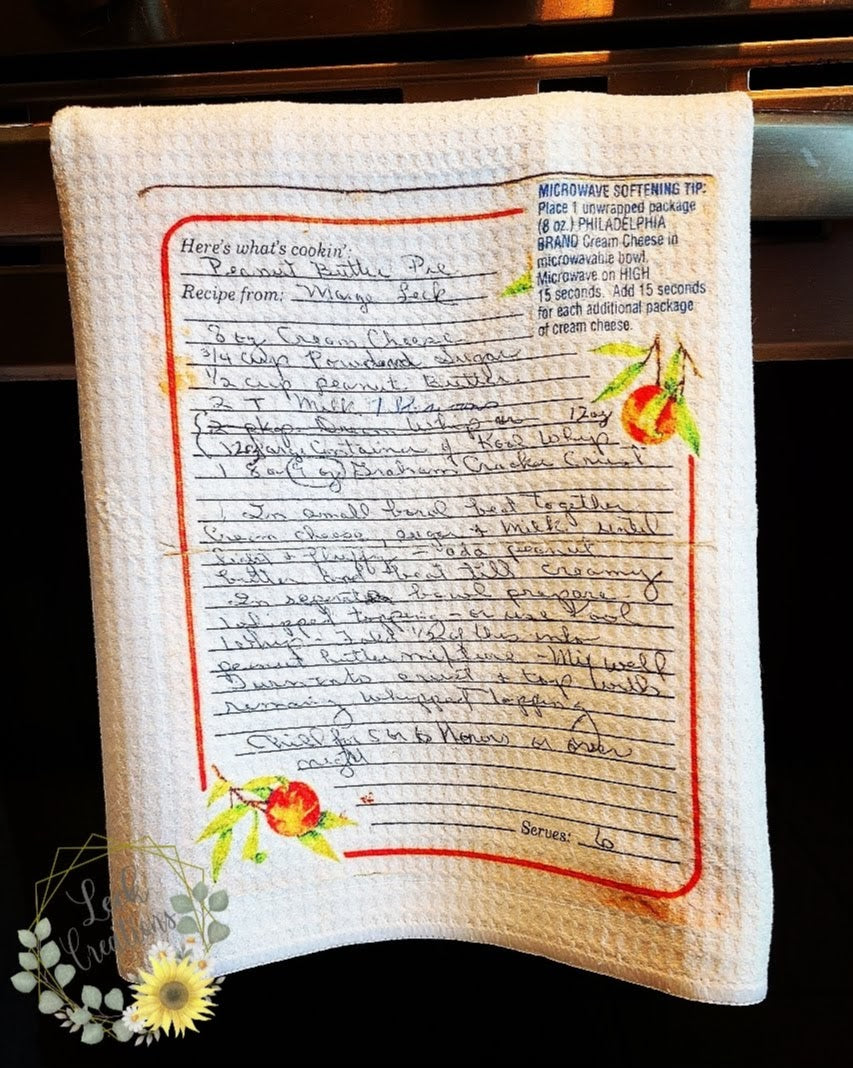 MICROWAVE SOFTENING TIP:
Place 1 unwrapped package
(8 oz.) PHILADELPHIA
BRAND Cream Cheese in
microwavable bowl.
Microwave on HIGH
15 seconds. Add 15 seconds
for each additional package
of cream cheese.
Here's what's cookin':
Peanut Butter Pie
Recipe from: Marge Leck
8 oz Cream Cheese
3/4 cup Powdered Sugar
1/2 cup peanut Butter
2 T Milk
2 pkgs Dream Whip or 12oz
Container of Kool Whip
1 8 or 9 oz Graham Cracker Crust
In small bowl beat together
Cream cheese, sugar & Milk until
light & fluffy - add peanut
butter and beat till creamy
In seperate bowl prepare
Whipped topping - or use Kool
Whip - Fold 1/2 of this into
peanut butter mixture - Mix well
Turn into crust & top with
remaing whipped topping
Chill for 5 or 6 Hours or over
night
Serves: 6
Leck
Creations